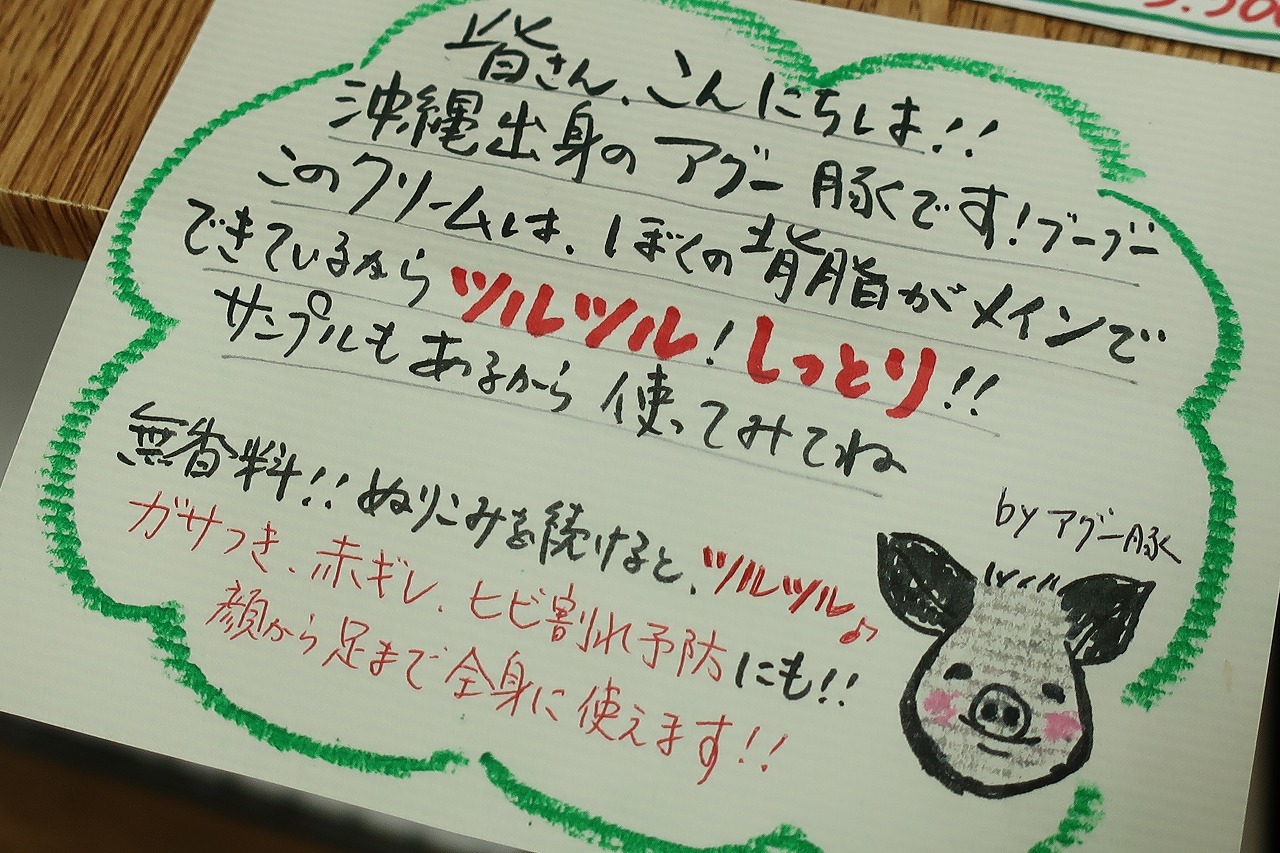 皆さん、こんにちは!!
沖縄出身のアグー豚です!ブーブー
このクリームは、ぼくの背脂がメインで
できているから ツルツル!しっとり!!
サンプルもあるから 使ってみてね
by アグー豚
無香料!!ぬりこみを続けると、ツルツル♪
ガサつき、赤ギレ、ヒビ割れ予防にも!!
顔から足まで全身に使えます!!